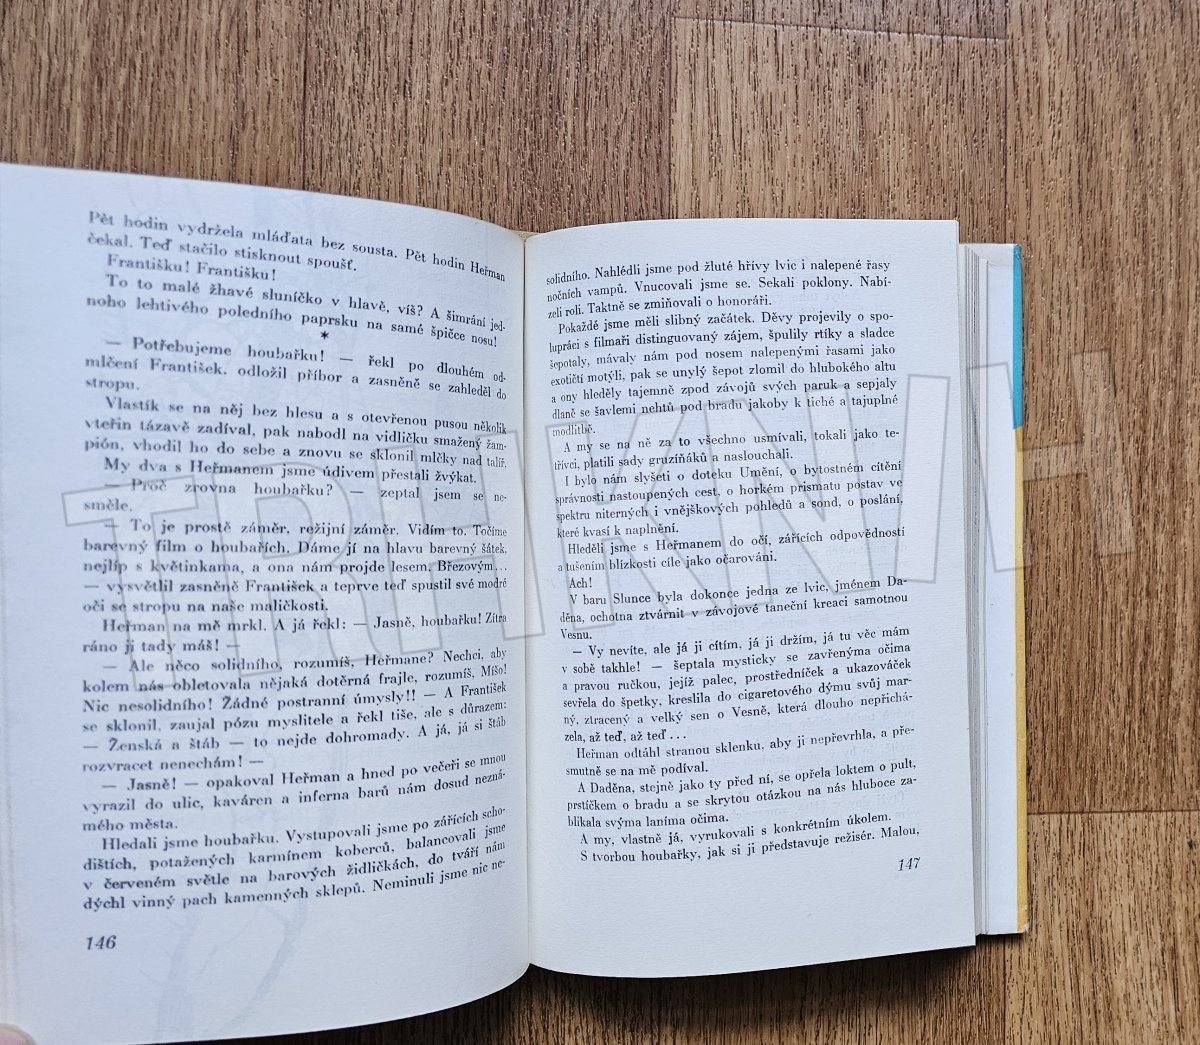 Pět hodin vydržela mláďata bez sousta. Pět hodin Heřman
čekal. Teď stačilo stisknout spoušť.
Františku! Františku!
To to malé žhavé sluníčko v hlavě, víš? A šimrání jed-
noho lehtivého poledního paprsku na samé špičce nosu!
*
— Potřebujeme houbařku! — řekl po dlouhém od-
mlčení František, odložil příbor a zasněně se zahleděl do
stropu.
Vlastík se na něj bez hlesu a s otevřenou pusou několik
vteřin tázavě zadíval, pak nabodl na vidličku smažený žam-
pión, vhodil ho do sebe a znovu se sklonil mlčky nad talíř.
My dva s Heřmanem jsme údivem přestali žvýkat.
— Proč zrovna houbařku? — zeptal jsem se ne-
směle.
— To je prostě záměr, režijní záměr. Vidím to. Točíme
barevný film o houbařích. Dáme jí na hlavu barevný šátek,
nejlíp s květinkama, a ona nám projde lesem. Březovým...
— vysvětlil zasněně František a teprve teď spustil své modré
oči se stropu na naše maličkosti.
Heřman na mě mrkl. A já řekl: — Jasně, houbařku! Zítra
ráno ji tady máš! —
— Ale něco solidního, rozumíš, Heřmane? Nechci, aby
kolem nás obletovala nějaká dotěrná frajle, rozumíš, Míšo!
Nic nesolidního! Žádné postranní úmysly!! — A František
se sklonil, zaujal pózu myslitele a řekl tiše, ale s důrazem:
— Ženská a štáb — to nejde dohromady. A já, já si štáb
rozvracet nenechám! —
— Jasně! — opakoval Heřman a hned po večeři se mnou
vyrazil do ulic, kaváren a inferna barů nám dosud nezná-
mého města.
Hledali jsme houbařku. Vystupovali jsme po zářících scho-
dištích, potažených karmínem koberců, balancovali jsme
v červeném světle na barových židličkách, do tváří nám
dýchl vinný pach kamenných sklepů. Neminuli jsme nic ne-
146
solidního. Nahlédli jsme pod žluté hřívy lvic i nalepené řasy
nočních vampů. Vnucovali jsme se. Sekali poklony. Nabí-
zeli roli. Taktně se zmiňovali o honoráři.
Pokaždé jsme měli slibný začátek. Děvy projevily o spo-
lupráci s filmaři distinguovaný zájem, špulily rtíky a sladce
šepotaly, mávaly nám pod nosem nalepenými řasami jako
exotičtí motýli, pak se unylý šepot zlomil do hlubokého altu
a ony hleděly tajemně zpod závojů svých paruk a sepjaly
dlaně se šavlemi nehtů pod bradu jakoby k tiché a tajuplné
modlitbě.
A my se na ně za to všechno usmívali, tokali jako te-
třívci, platili sady gruzíňáků a naslouchali.
I bylo nám slyšeti o doteku Umění, o bytostném cítění
správnosti nastoupených cest, o horkém prismatu postav ve
spektru niterných i vnějškových pohledů a sond, o poslání,
které kvasí k naplnění.
Hleděli jsme s Heřmanem do očí, zářících odpovědností
a tušením blízkosti cíle jako očarováni.
Ach!
V baru Slunce byla dokonce jedna ze lvic, jménem Da-
děna, ochotna ztvárnit v závojové taneční kreaci samotnou
Vesnu.
— Vy nevíte, ale já ji cítím, já ji držím, já tu věc mám
v sobě takhle! — šeptala mysticky se zavřenýma očima
a pravou ručkou, jejíž palec, prostředníček a ukazováček
sevřela do špetky, kreslila do cigaretového dýmu svůj mar-
ný, ztracený a velký sen o Vesně, která dlouho nepřichá-
zela, až teď, až teď ...
Heřman odtáhl stranou sklenku, aby ji nepřevrhla, a pře-
smutně se na mě podíval.
A Daděna, stejně jako ty před ní, se opřela loktem o pult,
prstíčkem o bradu a se skrytou otázkou na nás hluboce za-
blikala svýma laníma očima.
A my, vlastně já, vyrukovali s konkrétním úkolem.
S tvorbou houbařky, jak si ji představuje režisér. Malou,
147
TRHKNIH